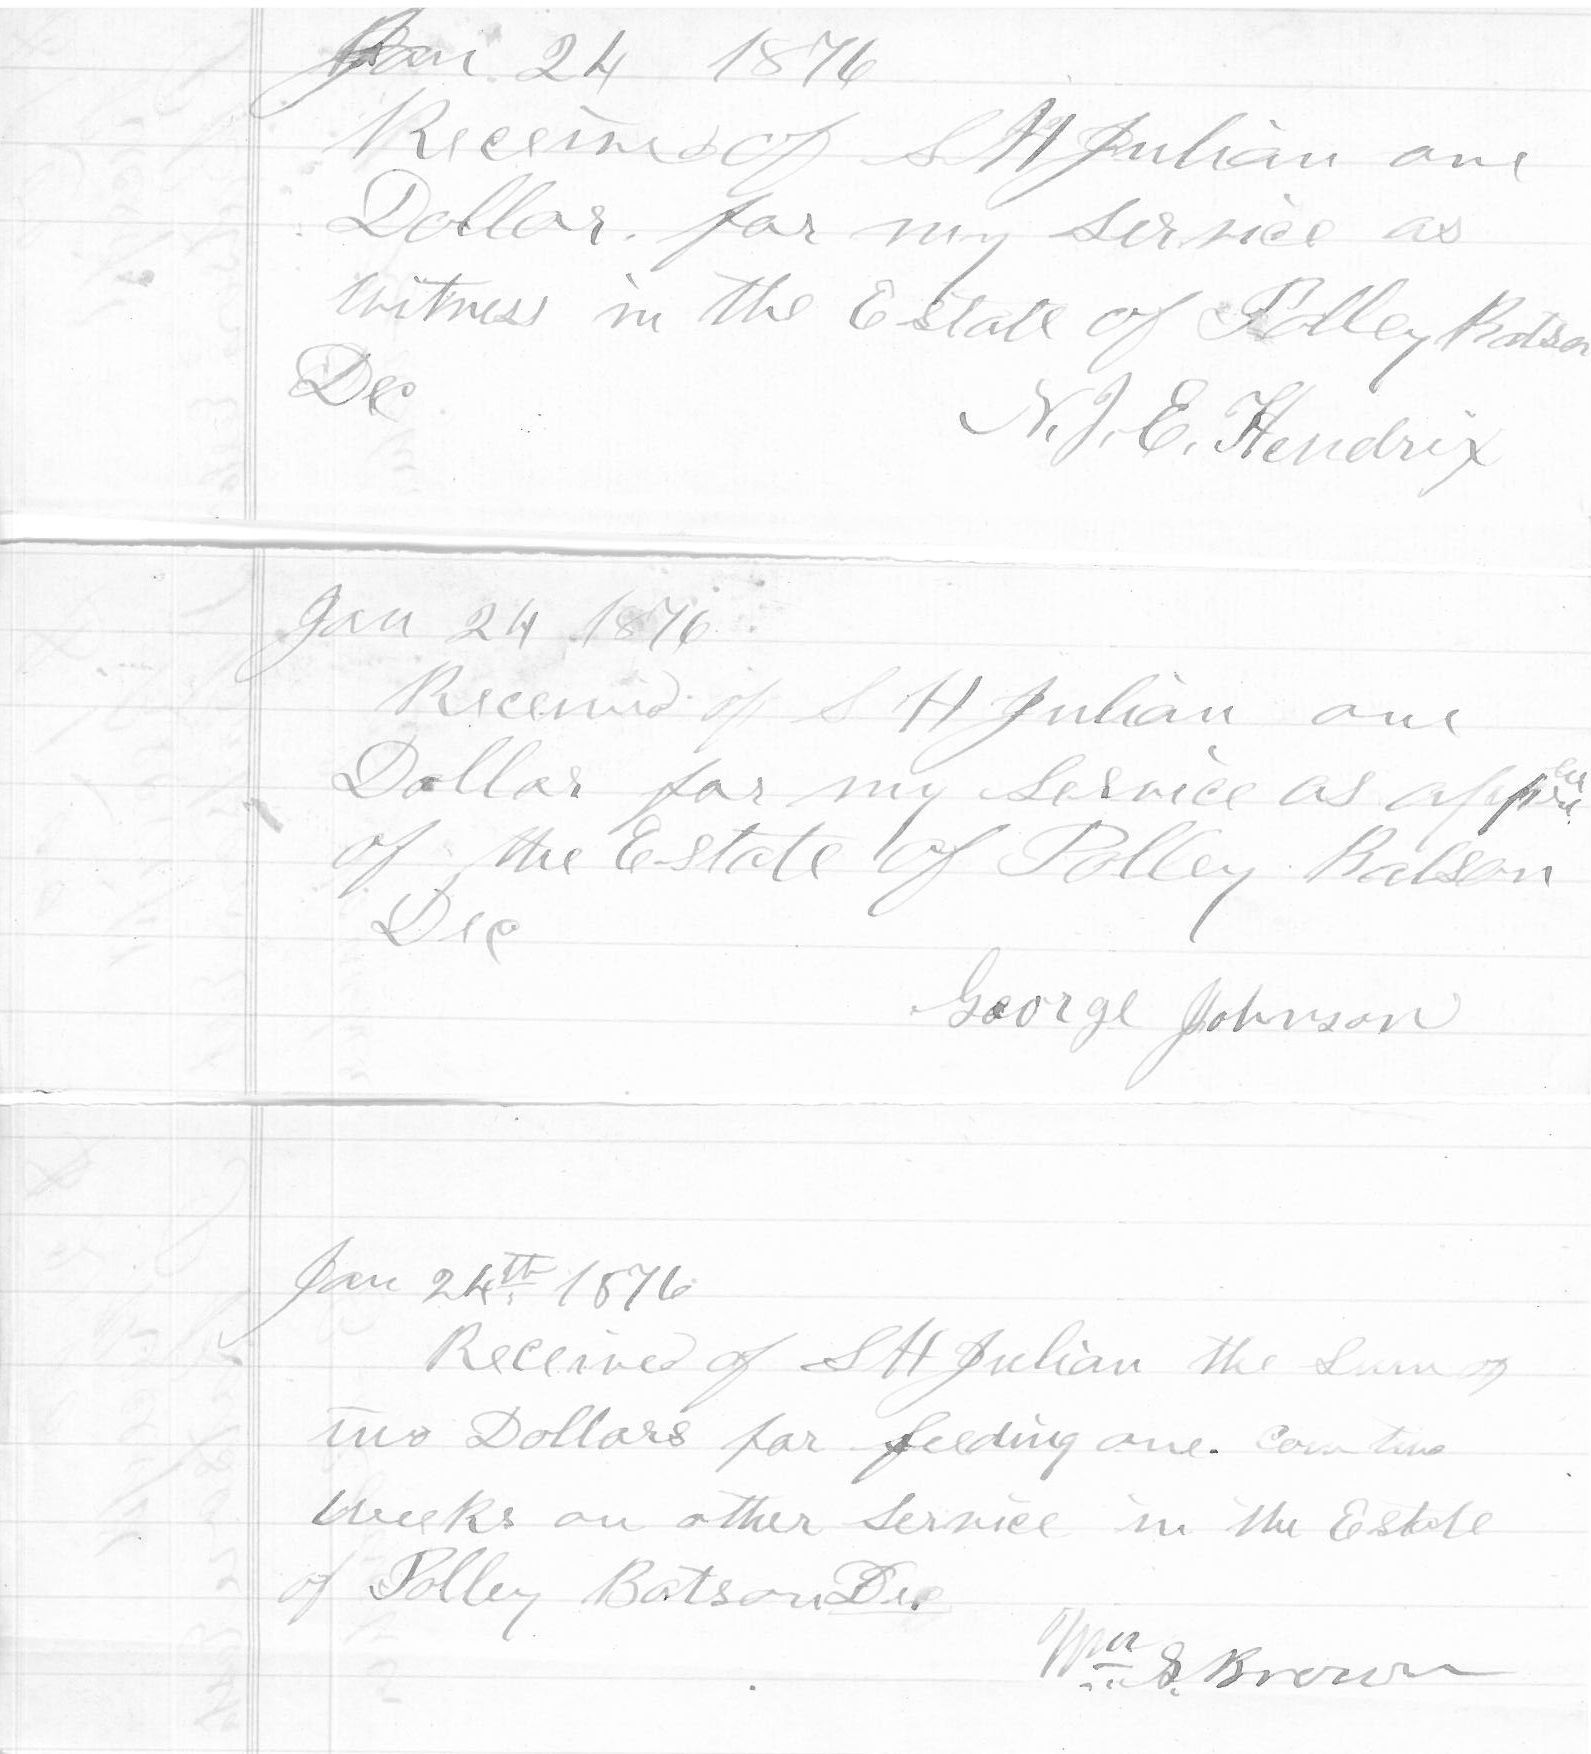 Jan 24 1876
Received of S H Julian one
Dollar. for my Service as
witness in the Estate of Polley Batson
Dec
N. J. E. Hendrix
Jan 24 1876
Received of S H Julian one
Dollar for my Service as
of the Estate of Polley Batson
Dec
George Johnson
Jan 24th 1876
Received of S H Julian the Sum of
two Dollars for feeding one. Cow two
weeks an other Service in the Estate
of Polley Batson Dec
Wm S. Brown